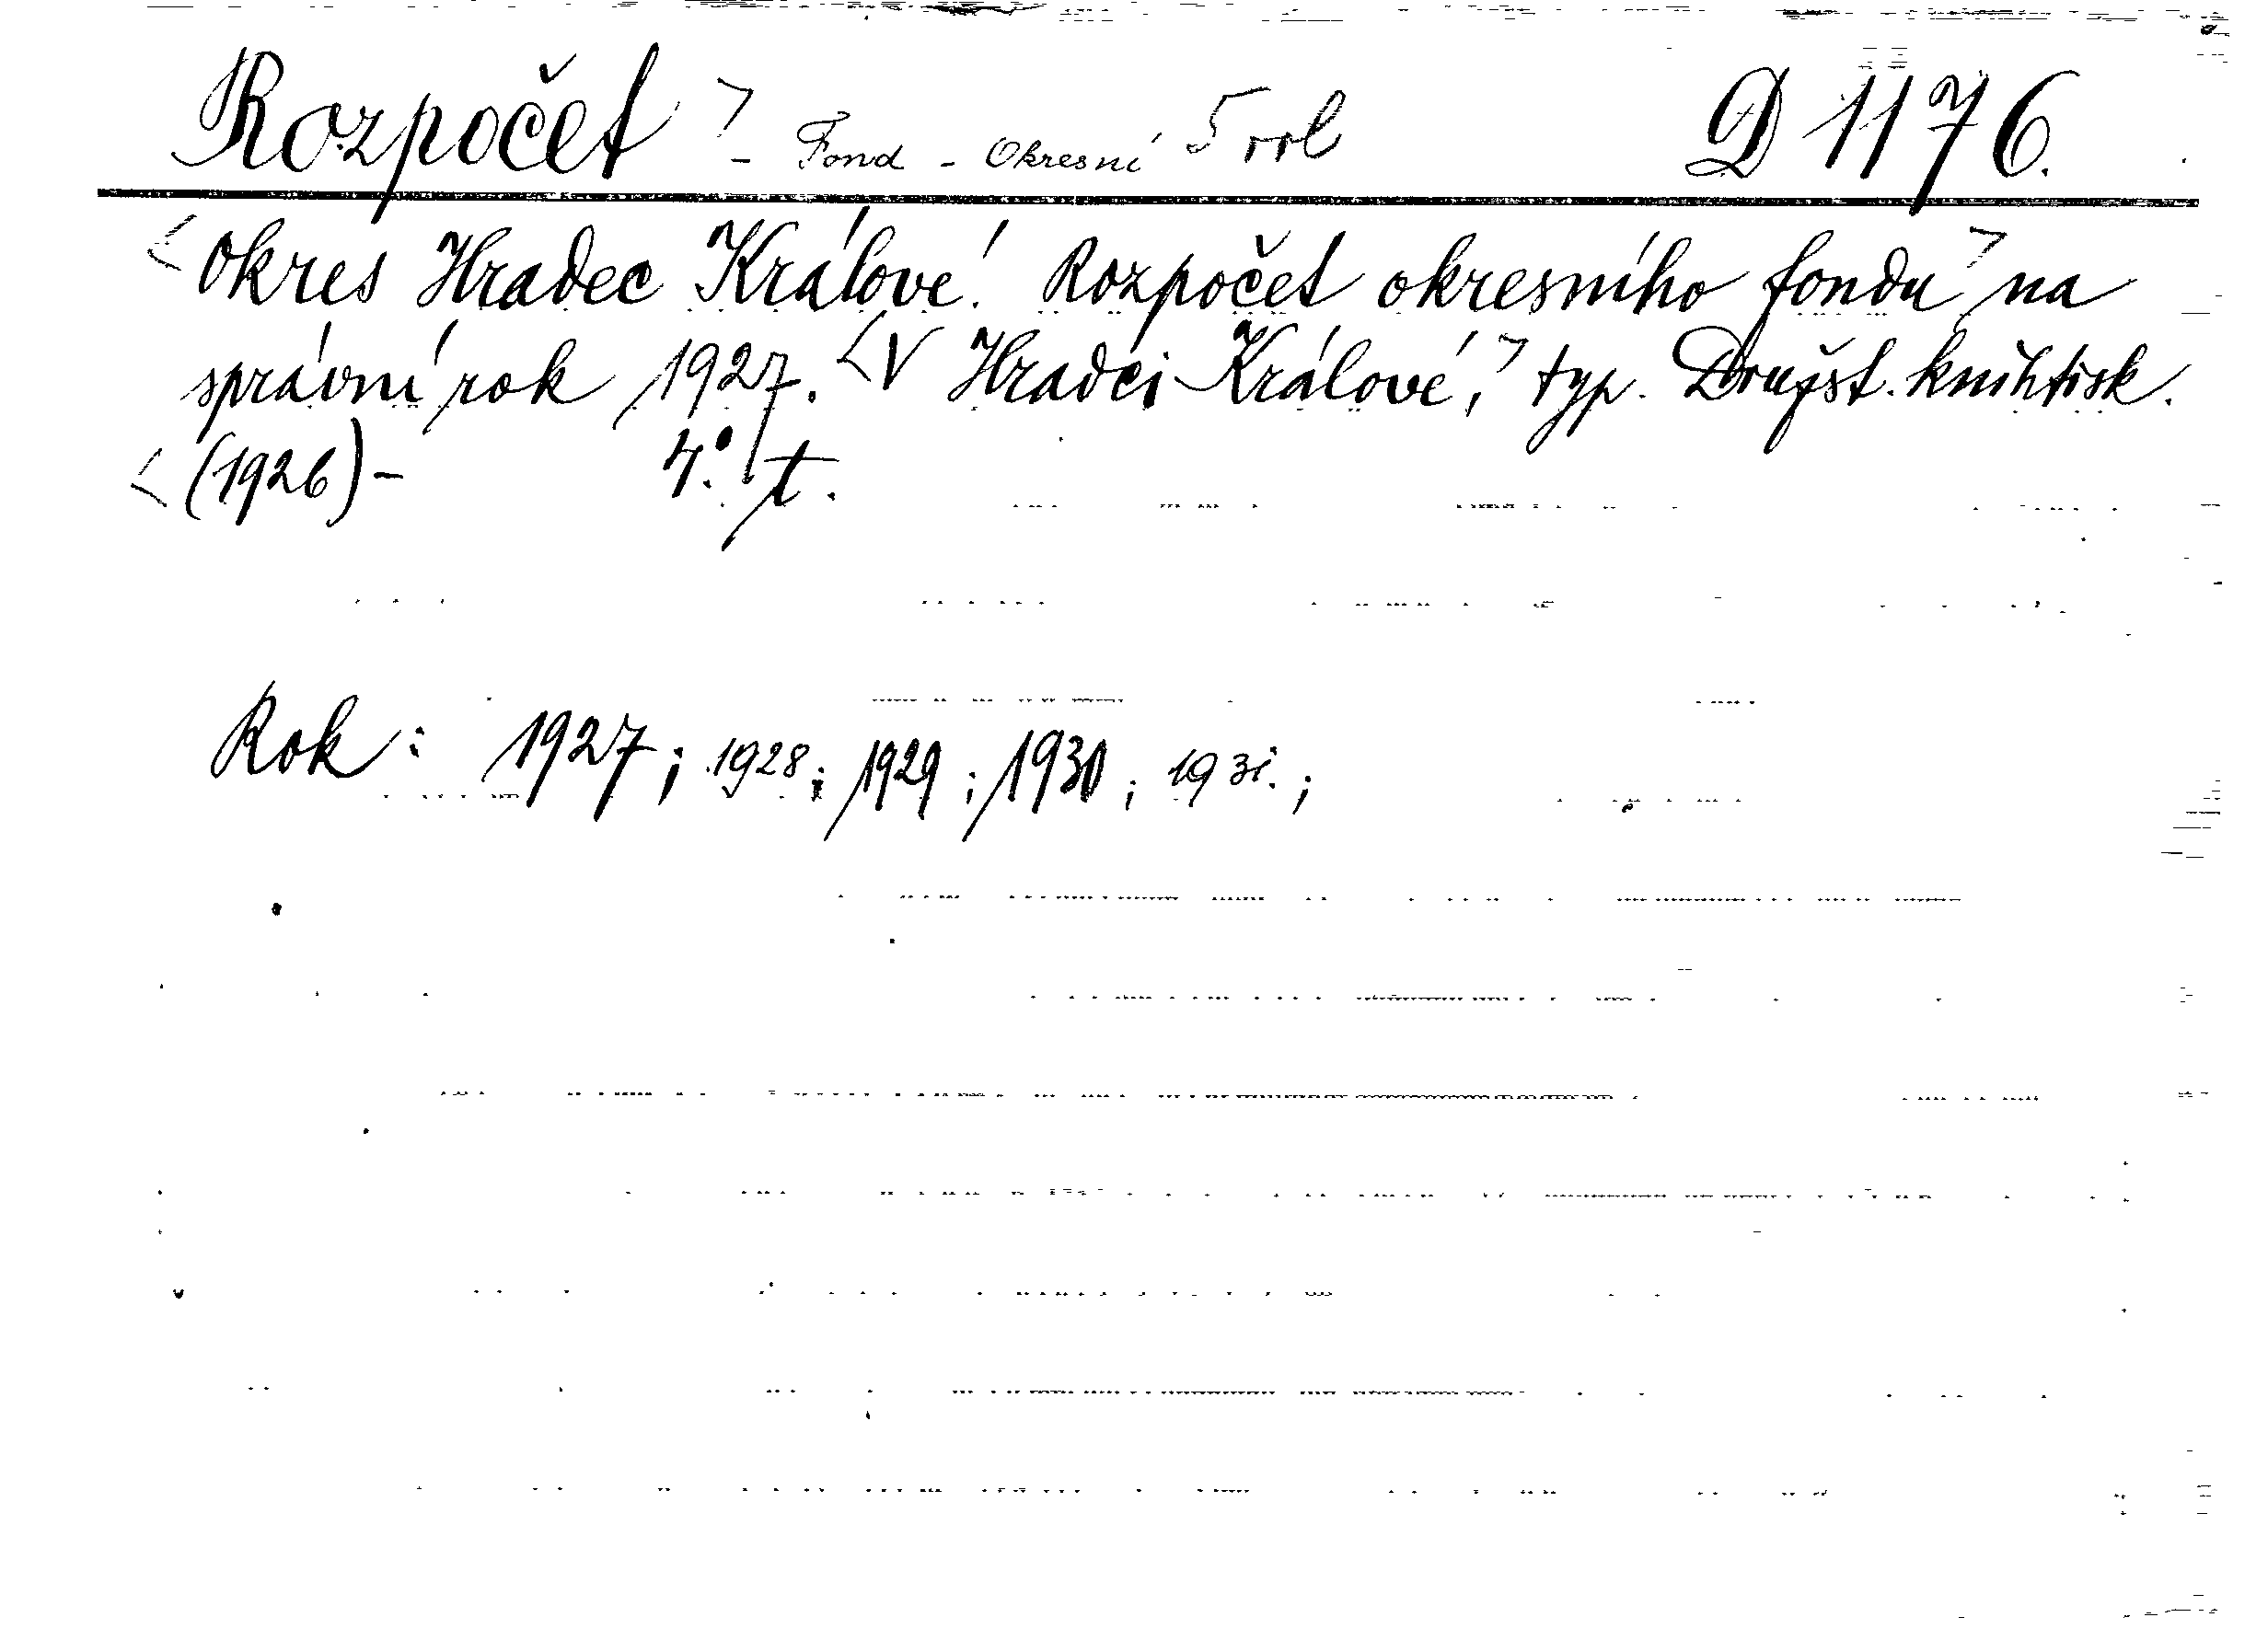 Rozpočet > - Fond - Okresní 5 D 1176.
< Okres Hradec Králové. Rozpočet okresního fondu > na
správní rok 1927. < V Hradci Králové, > typ. Družst. knihtisk.
< (1926) - 4.° t.
Rok : 1927 ; 1928 ; 1929 ; 1930 ; 1931. ;